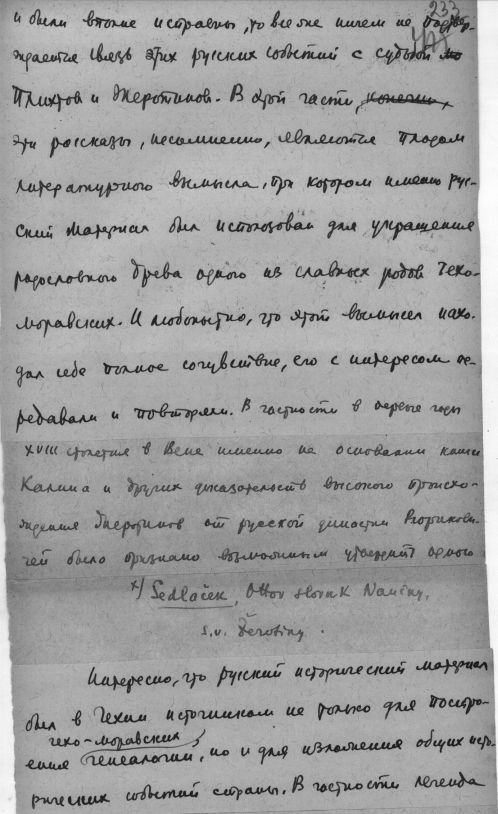 233
и были вполне исправны, то все же ничем не подтвер-
ждается связь этих русских событий с судьбой
Плихтов и Жеротинов. В этой части, конечно,
эти рассказы, несомненно, являются плодом
литературного вымысла, при котором именно рус-
ский материал был использован для украшения
родословного древа одного из славных родов Чехо-
моравских. И любопытно, что этот вымысел нахо-
дил себе полное сочувствие, его с интересом пе-
редавали и повторяли. В частности в первые годы
XVIII столетия в Вене именно на основании книги
Калина и других доказательств высокого происхо-
ждения Жеротинов от русской династии Рюрикови-
чей было признано возможным утвердить одного
x) Sedláček, Ottov slovník Naučný,
s.v. Žerotiny.
Интересно, что русский исторический материал
был в Чехии источником не только для построе-
чехо-моравских
ения генеалогий, но и для изложения общих исто-
рических событий страны. В частности легенда